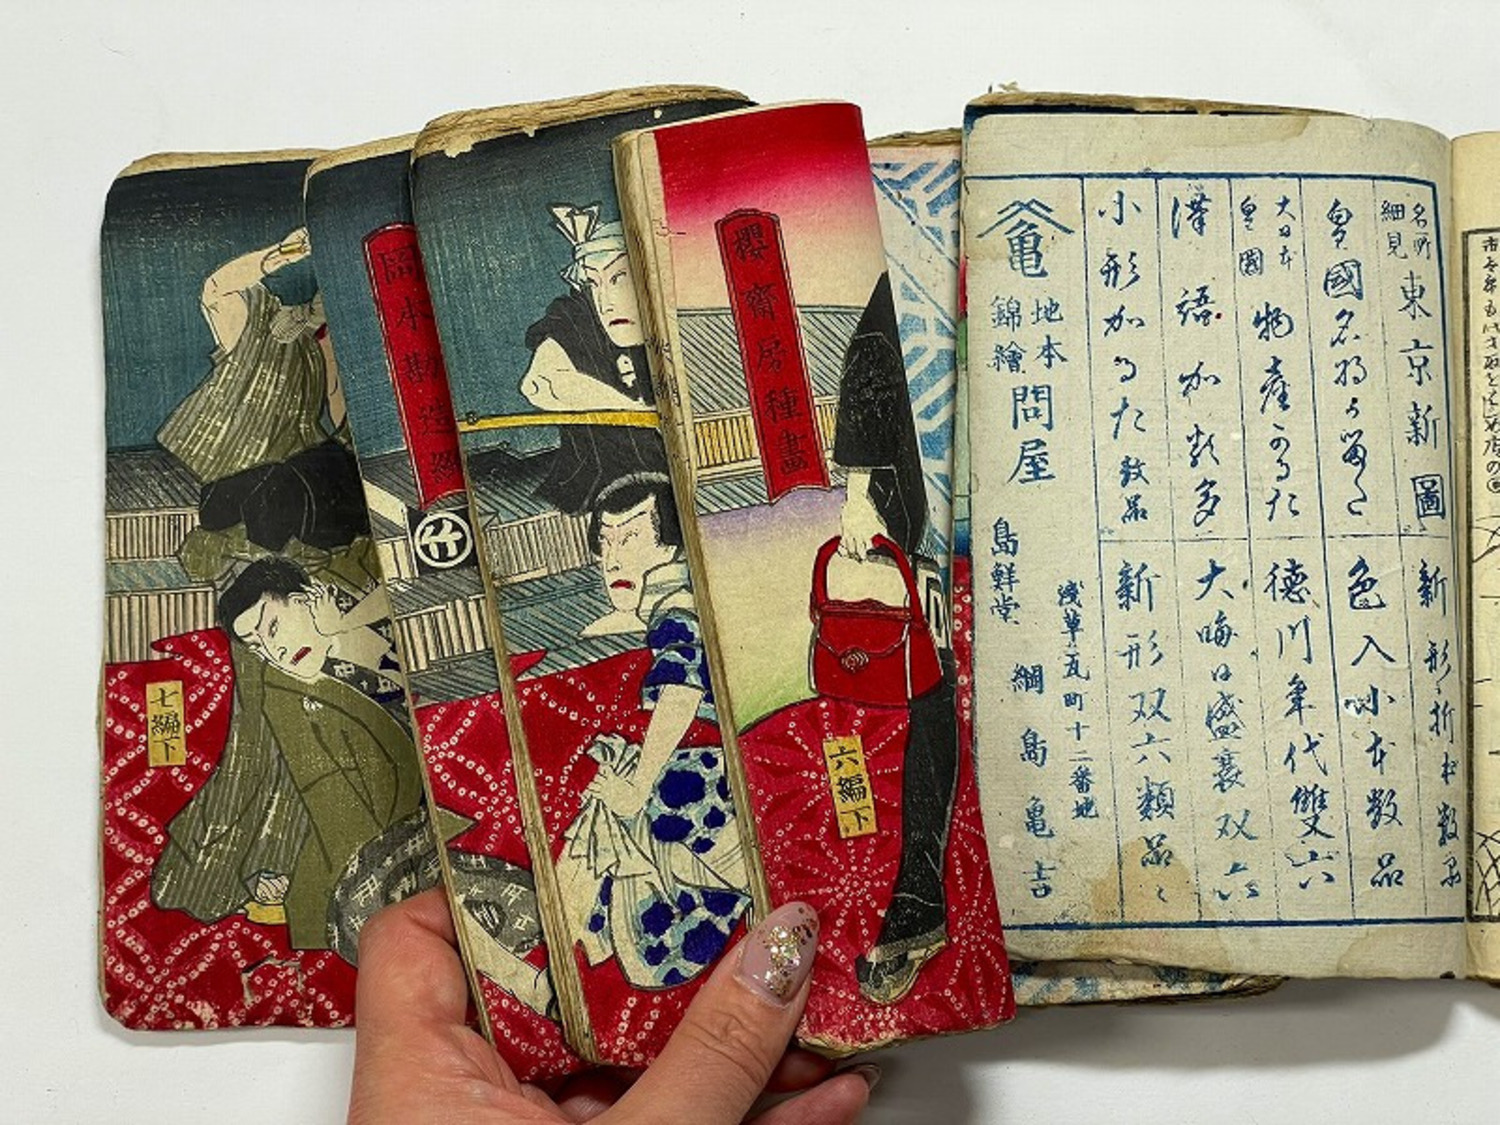 櫻齋房種畫
六編下
岡本勘造綴
竹
七編下
名所細見 東京新圖 新形折本数品
皇國名将かるた 色入小本数品
大日本皇國 物産かるた 徳川年代雙六
漢語かるた 大晦日盛衰双六
小形かるた数品 新形双六類品々
亀 地本錦繪問屋 浅草瓦町十二番地 島鮮堂 綱島亀吉